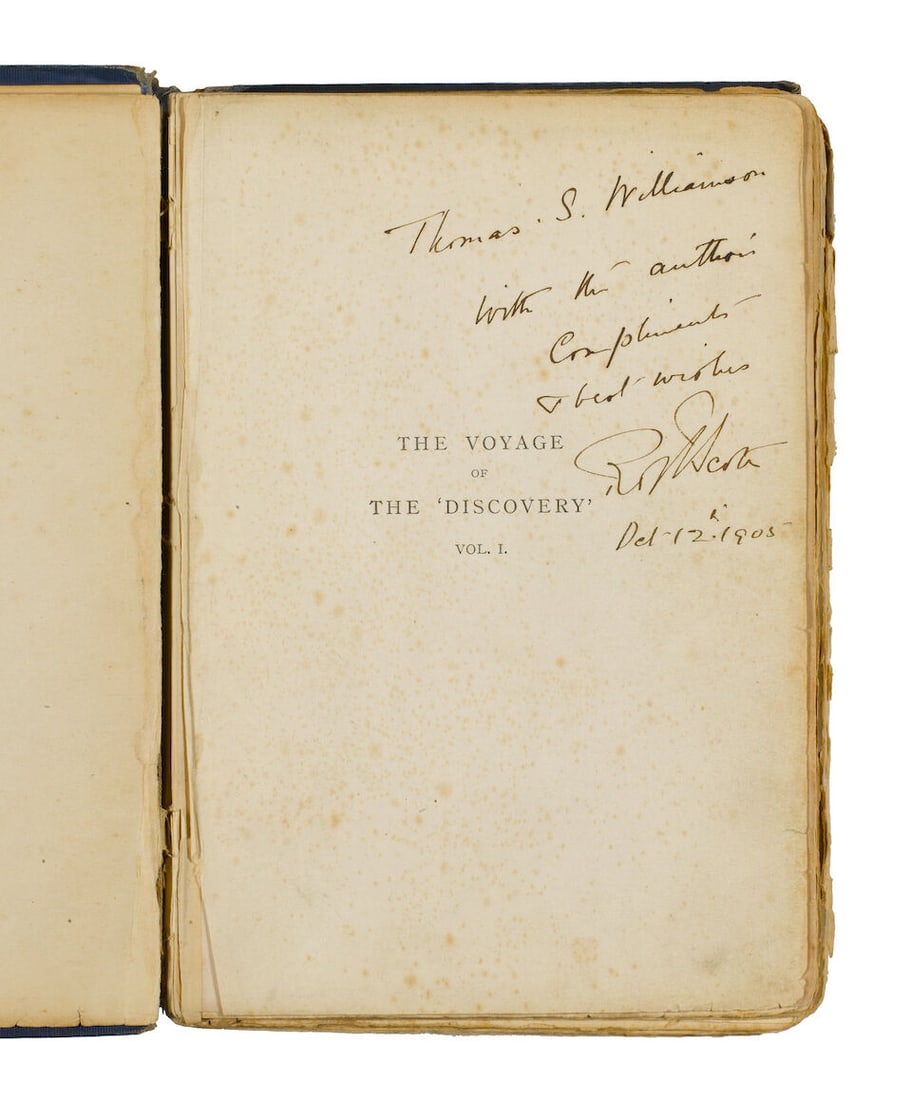 Thomas. S. Williamson
With the author's
Compliments
& best wishes
THE VOYAGE
OF
THE 'DISCOVERY'
VOL. I.
RFScott
Oct 12th. 1905